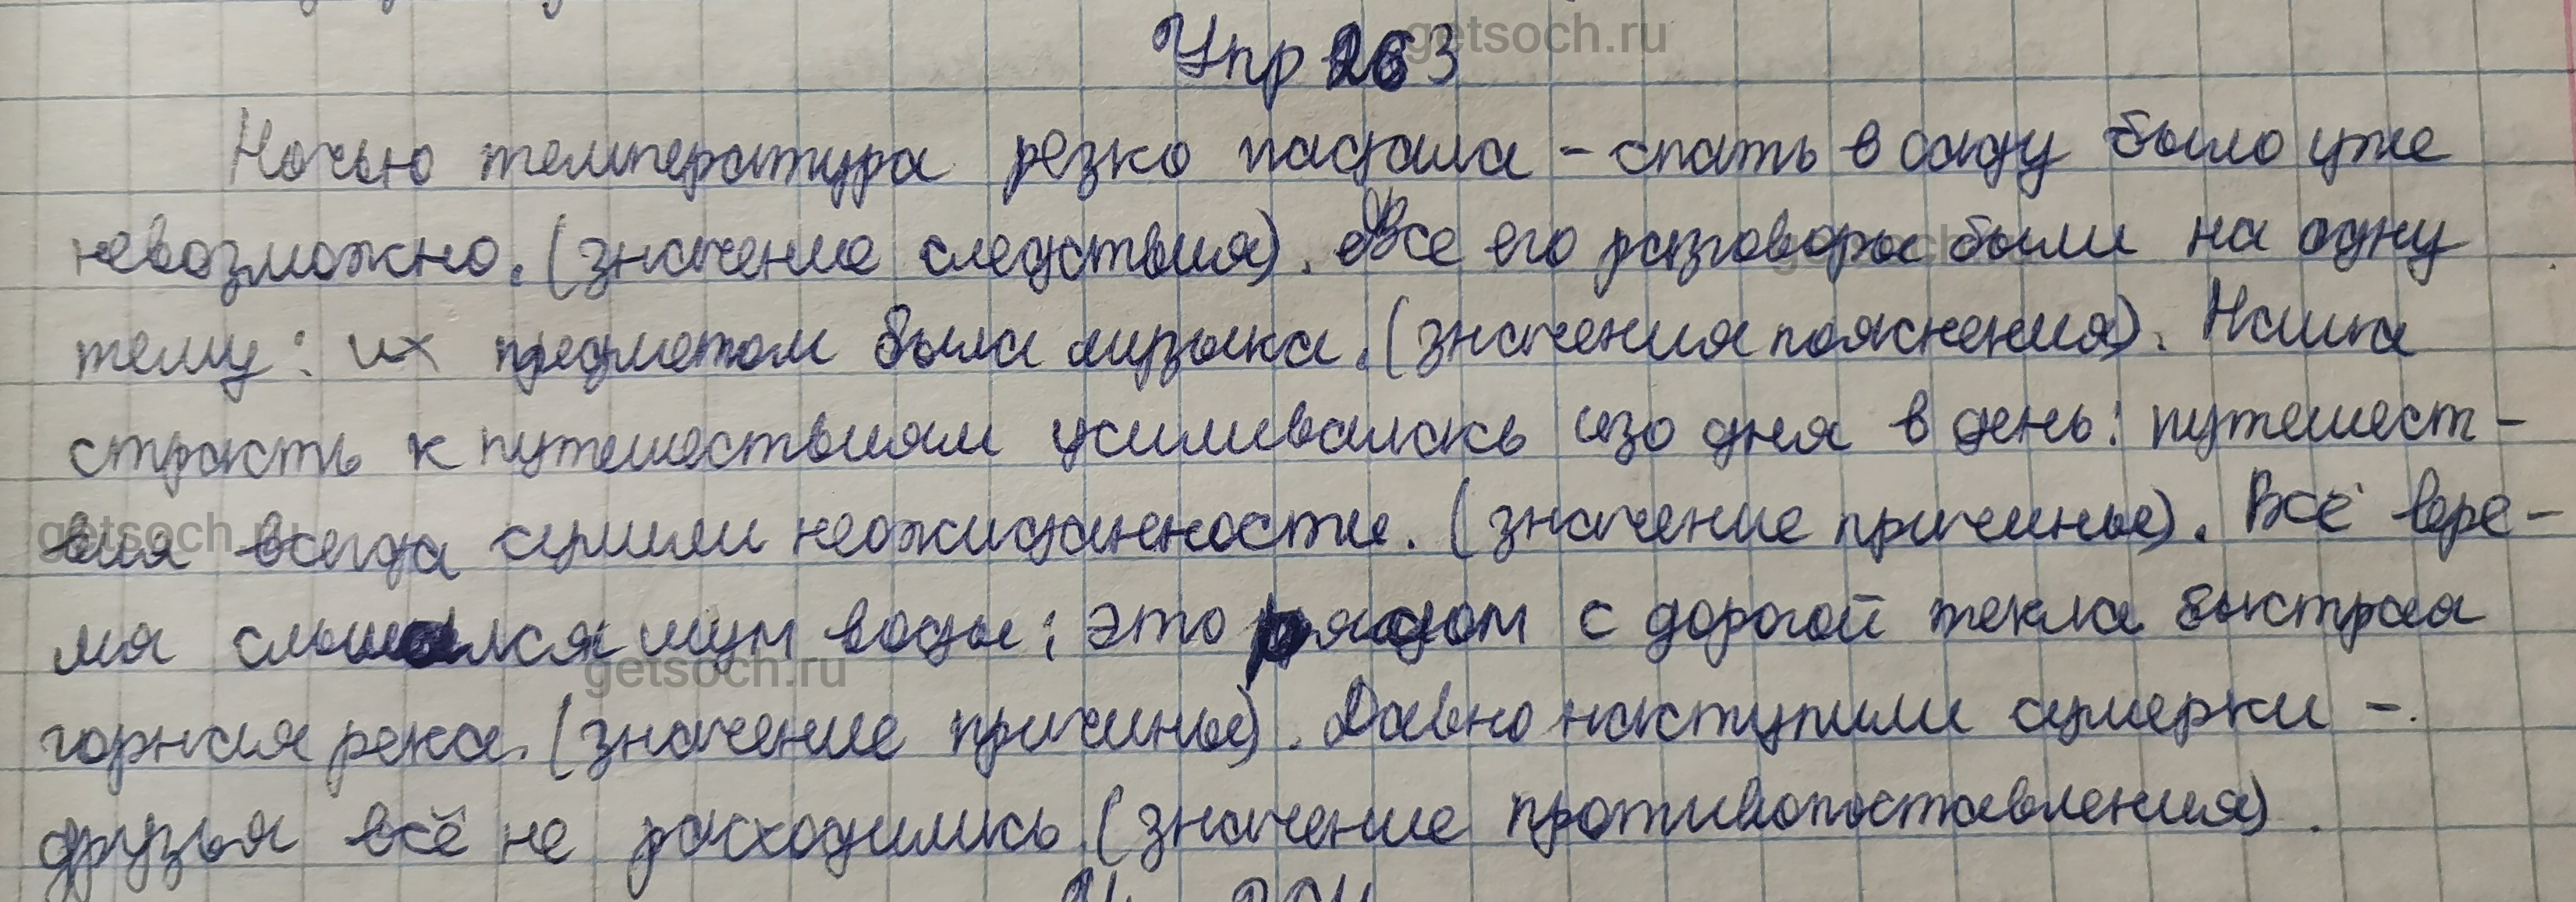 Упр 263
Ночью температура резко падала – спать в саду было уже
невозможно. (значение следствия). Все его разговоры были на одну
тему: их предметом была музыка. (значения пояснения). Наша
страсть к путешествиям усиливалась изо дня в день: путешест-
вия всегда сулили неожиданности. (значение причины). Всё вре-
мя слышался шум воды: это рядом с дорогой текла быстрая
горная река. (значение причины). Давно наступили сумерки –
друзья всё не расходились (значение противопоставления).
getsoch.ru
getsoch.ru
getsoch.ru
getsoch.ru